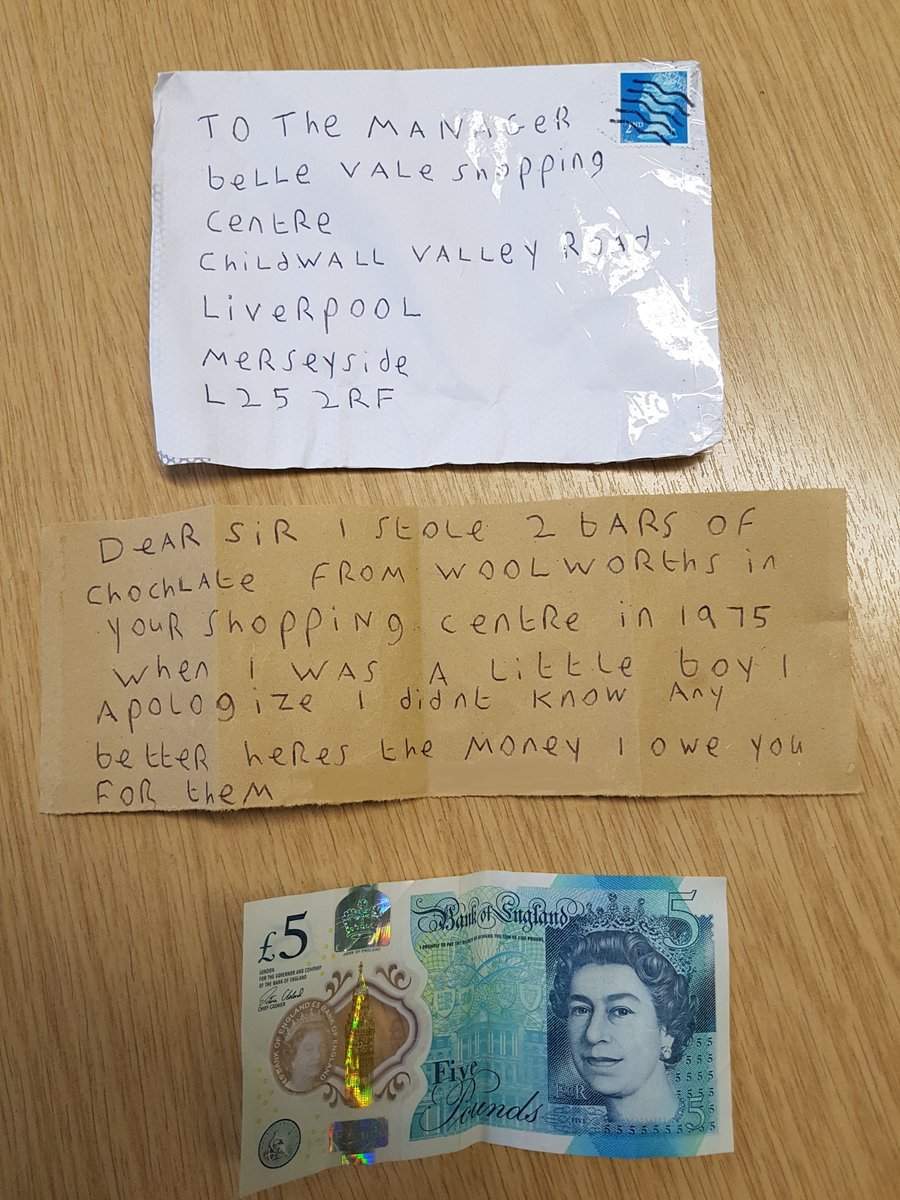 TO The MANAGeR
beLLe VALe shopping
CentRe
ChiLdWALL VALLey ROAd
LiveRpOOL
MeRseyside
L25 2RF
2ND
DeAR SiR I StOLe 2 bARS OF
ChochLAte FROM WOOLWORths in
youR Shopping centRe in 1975
When I WAS A LittLe boy I
ApoLogize I didnt KnoW Any
betteR heRes the Money I owe you
FoR theM
£5
BANK OF ENGLAND
Bank of England
5
I PROMISE TO PAY THE BEARER ON DEMAND THE SUM OF FIVE POUNDS
LONDON
FOR THE GOVERNOR AND COMPANY
OF THE BANK OF ENGLAND
CHIEF CASHIER
£5 BANK OF ENGLAND £5 BANK OF ENGLAND
Five
Pounds